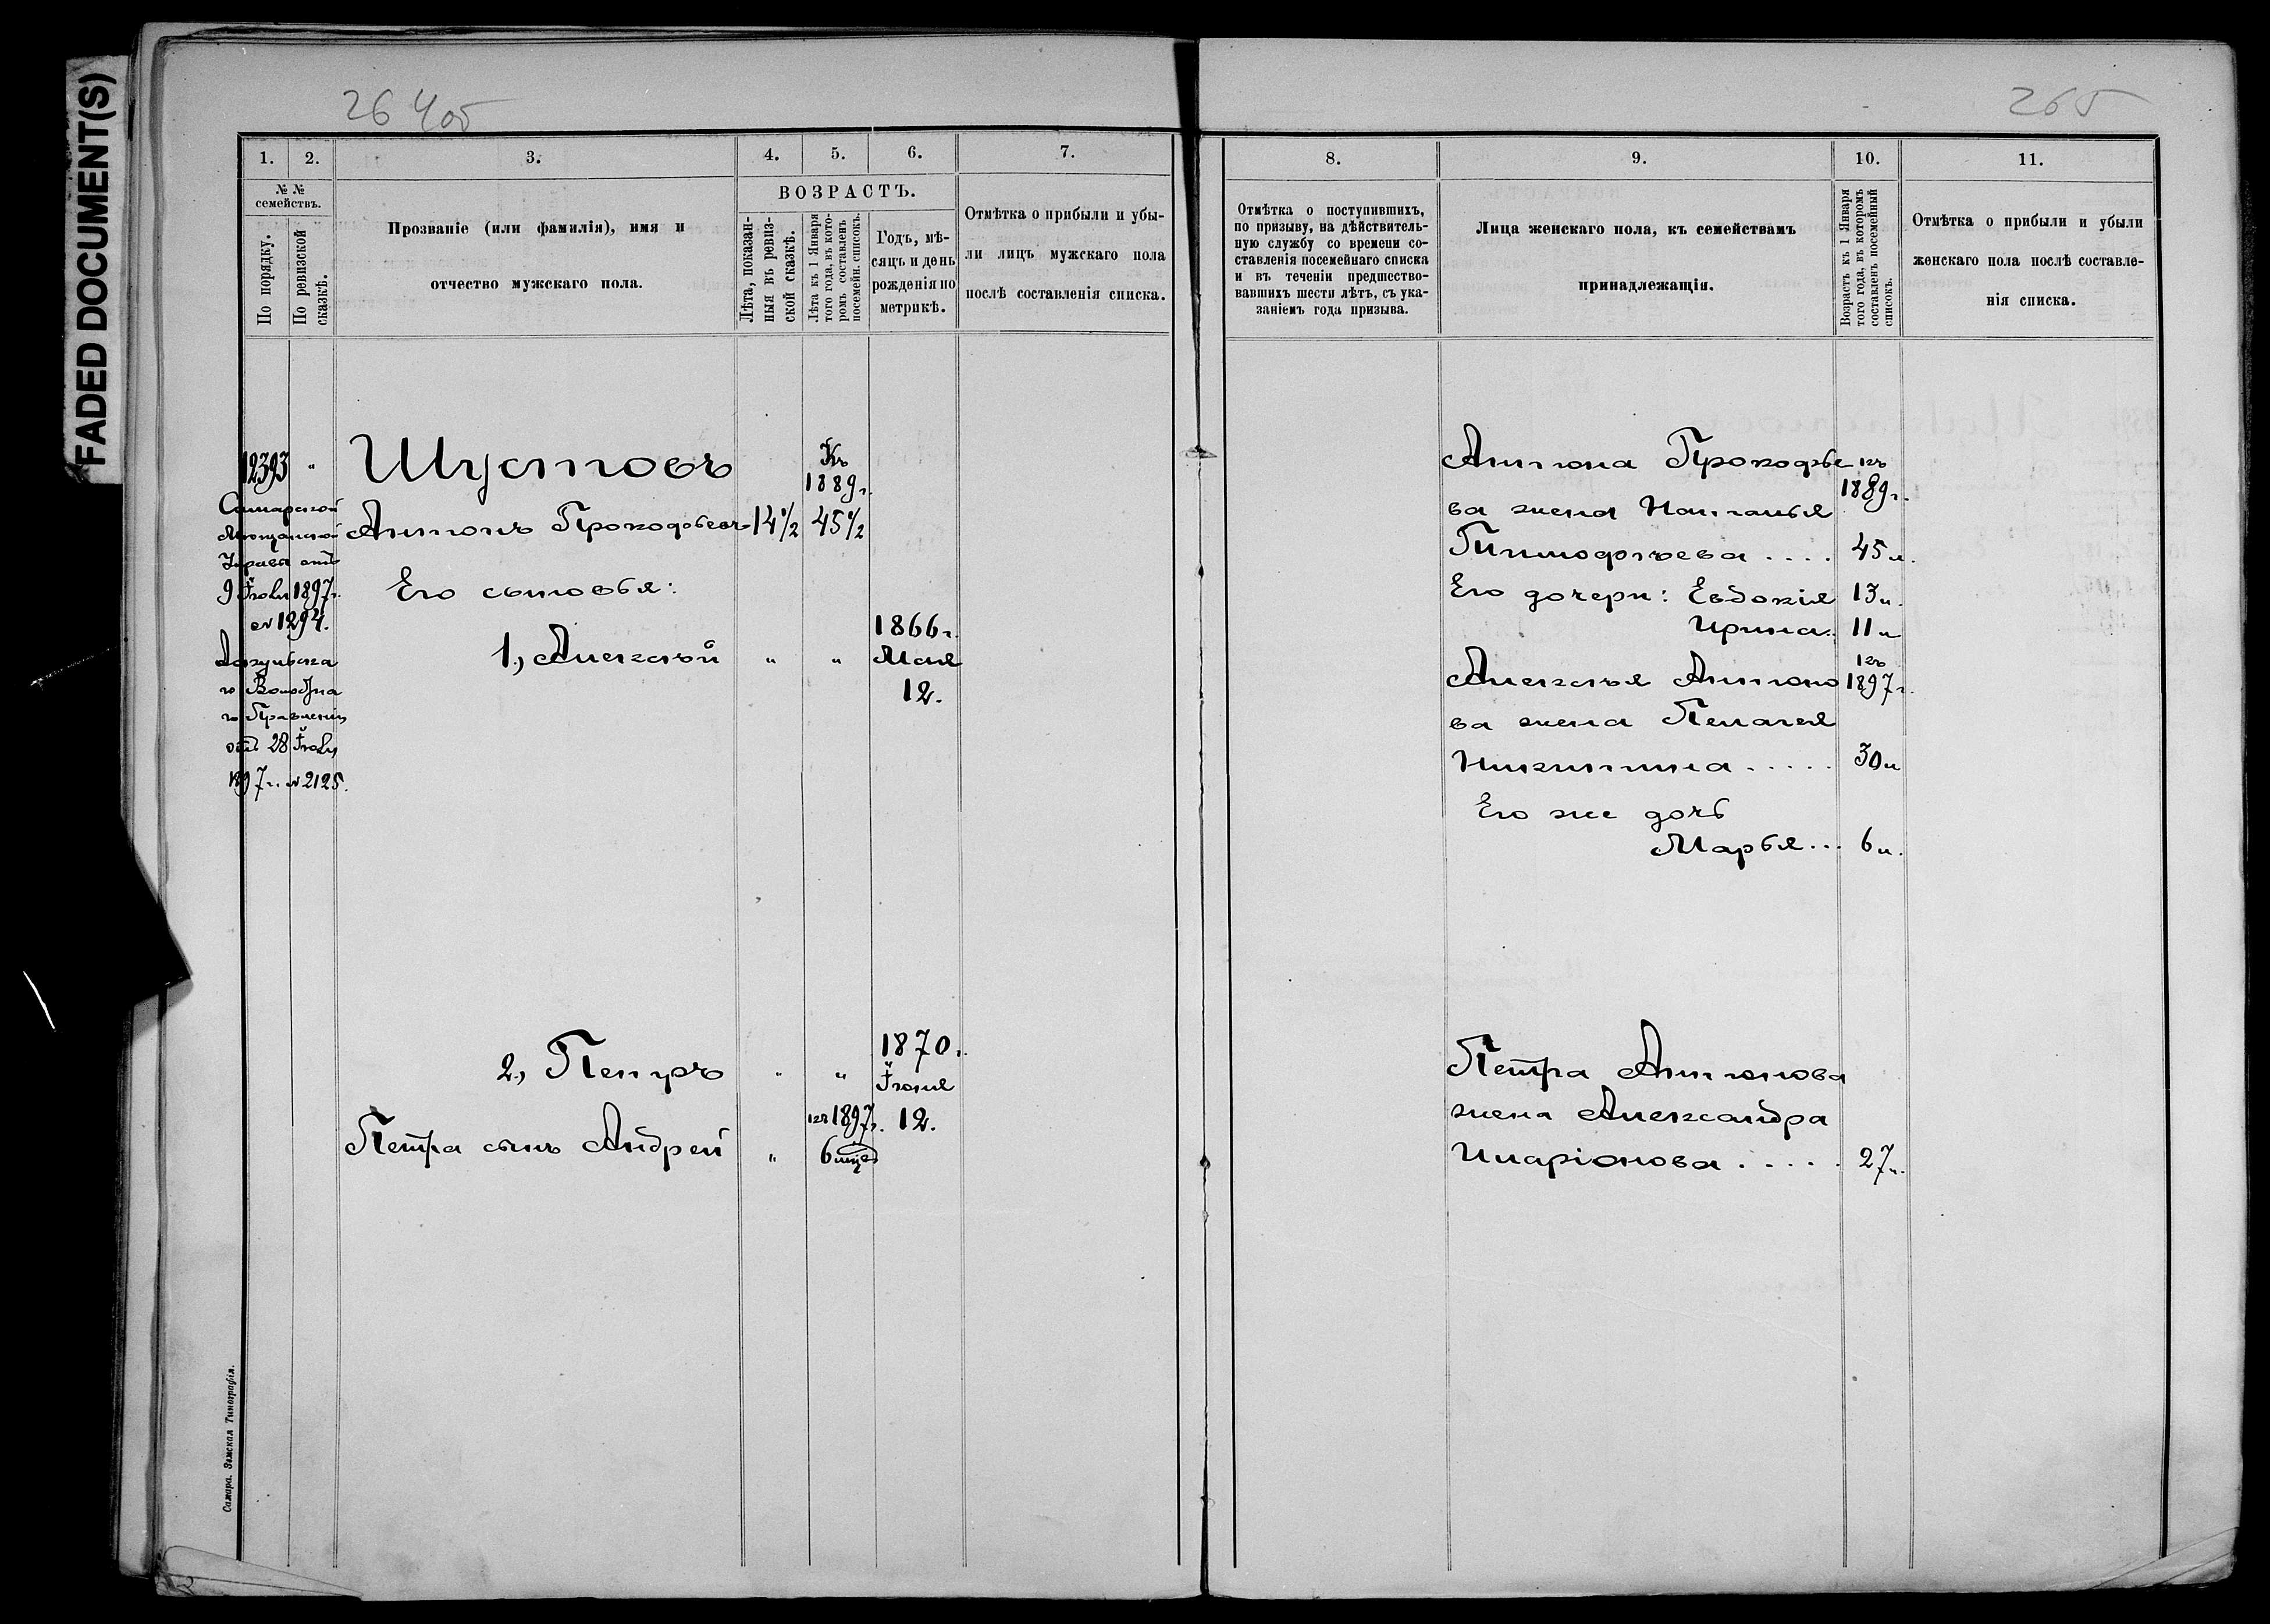 FADED DOCUMENT(S)
264об
265
1.
2.
3.
4.
5.
6.
7.
№ №
семействъ.
По порядку.
По ревизской
сказкѣ.
Прозваніе (или фамилія), имя и
отчество мужскаго пола.
ВОЗРАСТЪ.
Лѣта, показан-
ныя въ ревиз-
ской сказкѣ.
Лѣта къ 1 Января
того года, въ кото-
ромъ составленъ
посемейн. списокъ.
Годъ, мѣ-
сяцъ и день
рожденія по
метрикѣ.
Отмѣтка о прибыли и убы-
ли лицъ мужскаго пола
послѣ составленія списка.
12393 "
Самарской
Мѣщанской
Управы отъ
9 Іюля 1897г.
№ 1294.
отъ 28 Іюля
1897г. № 2125.
Шустовъ
Къ
1889г.
Антонъ Прокофьевъ 14½ 45½
Его сыновья:
1., Алексѣй " "
1866г.
Мая
12.
2., Петръ " "
1870г.
Іюня
12.
къ 1897г.
Петра сынъ Андрей " 6 мцев
Самара. Земская Типографія.
8.
9.
10.
11.
Отмѣтка о поступившихъ,
по призыву, на дѣйствитель-
ную службу со времени со-
ставленія посемейнаго списка
и въ теченіи предшество-
вавшихъ шести лѣтъ, съ ука-
заніемъ года призыва.
Лица женскаго пола, къ семействамъ
принадлежащія.
Возрастъ къ 1 Января
того года, въ которомъ
составленъ посемейный
списокъ.
Отмѣтка о прибыли и убыли
женскаго пола послѣ составле-
нія списка.
Антона Прокофье къ
1889г.
ва жена Наталья
Тимофѣева .... 45л.
Его дочери: Евдокія 13л.
Ирина. 11л
къ
Алексѣя Антоно 1897г.
ва жена Пелагея
Никитина ..... 30л
Его же дочь
Марья... 6л.
Петра Антонова
жена Александра
Иларіонова ..... 27л.